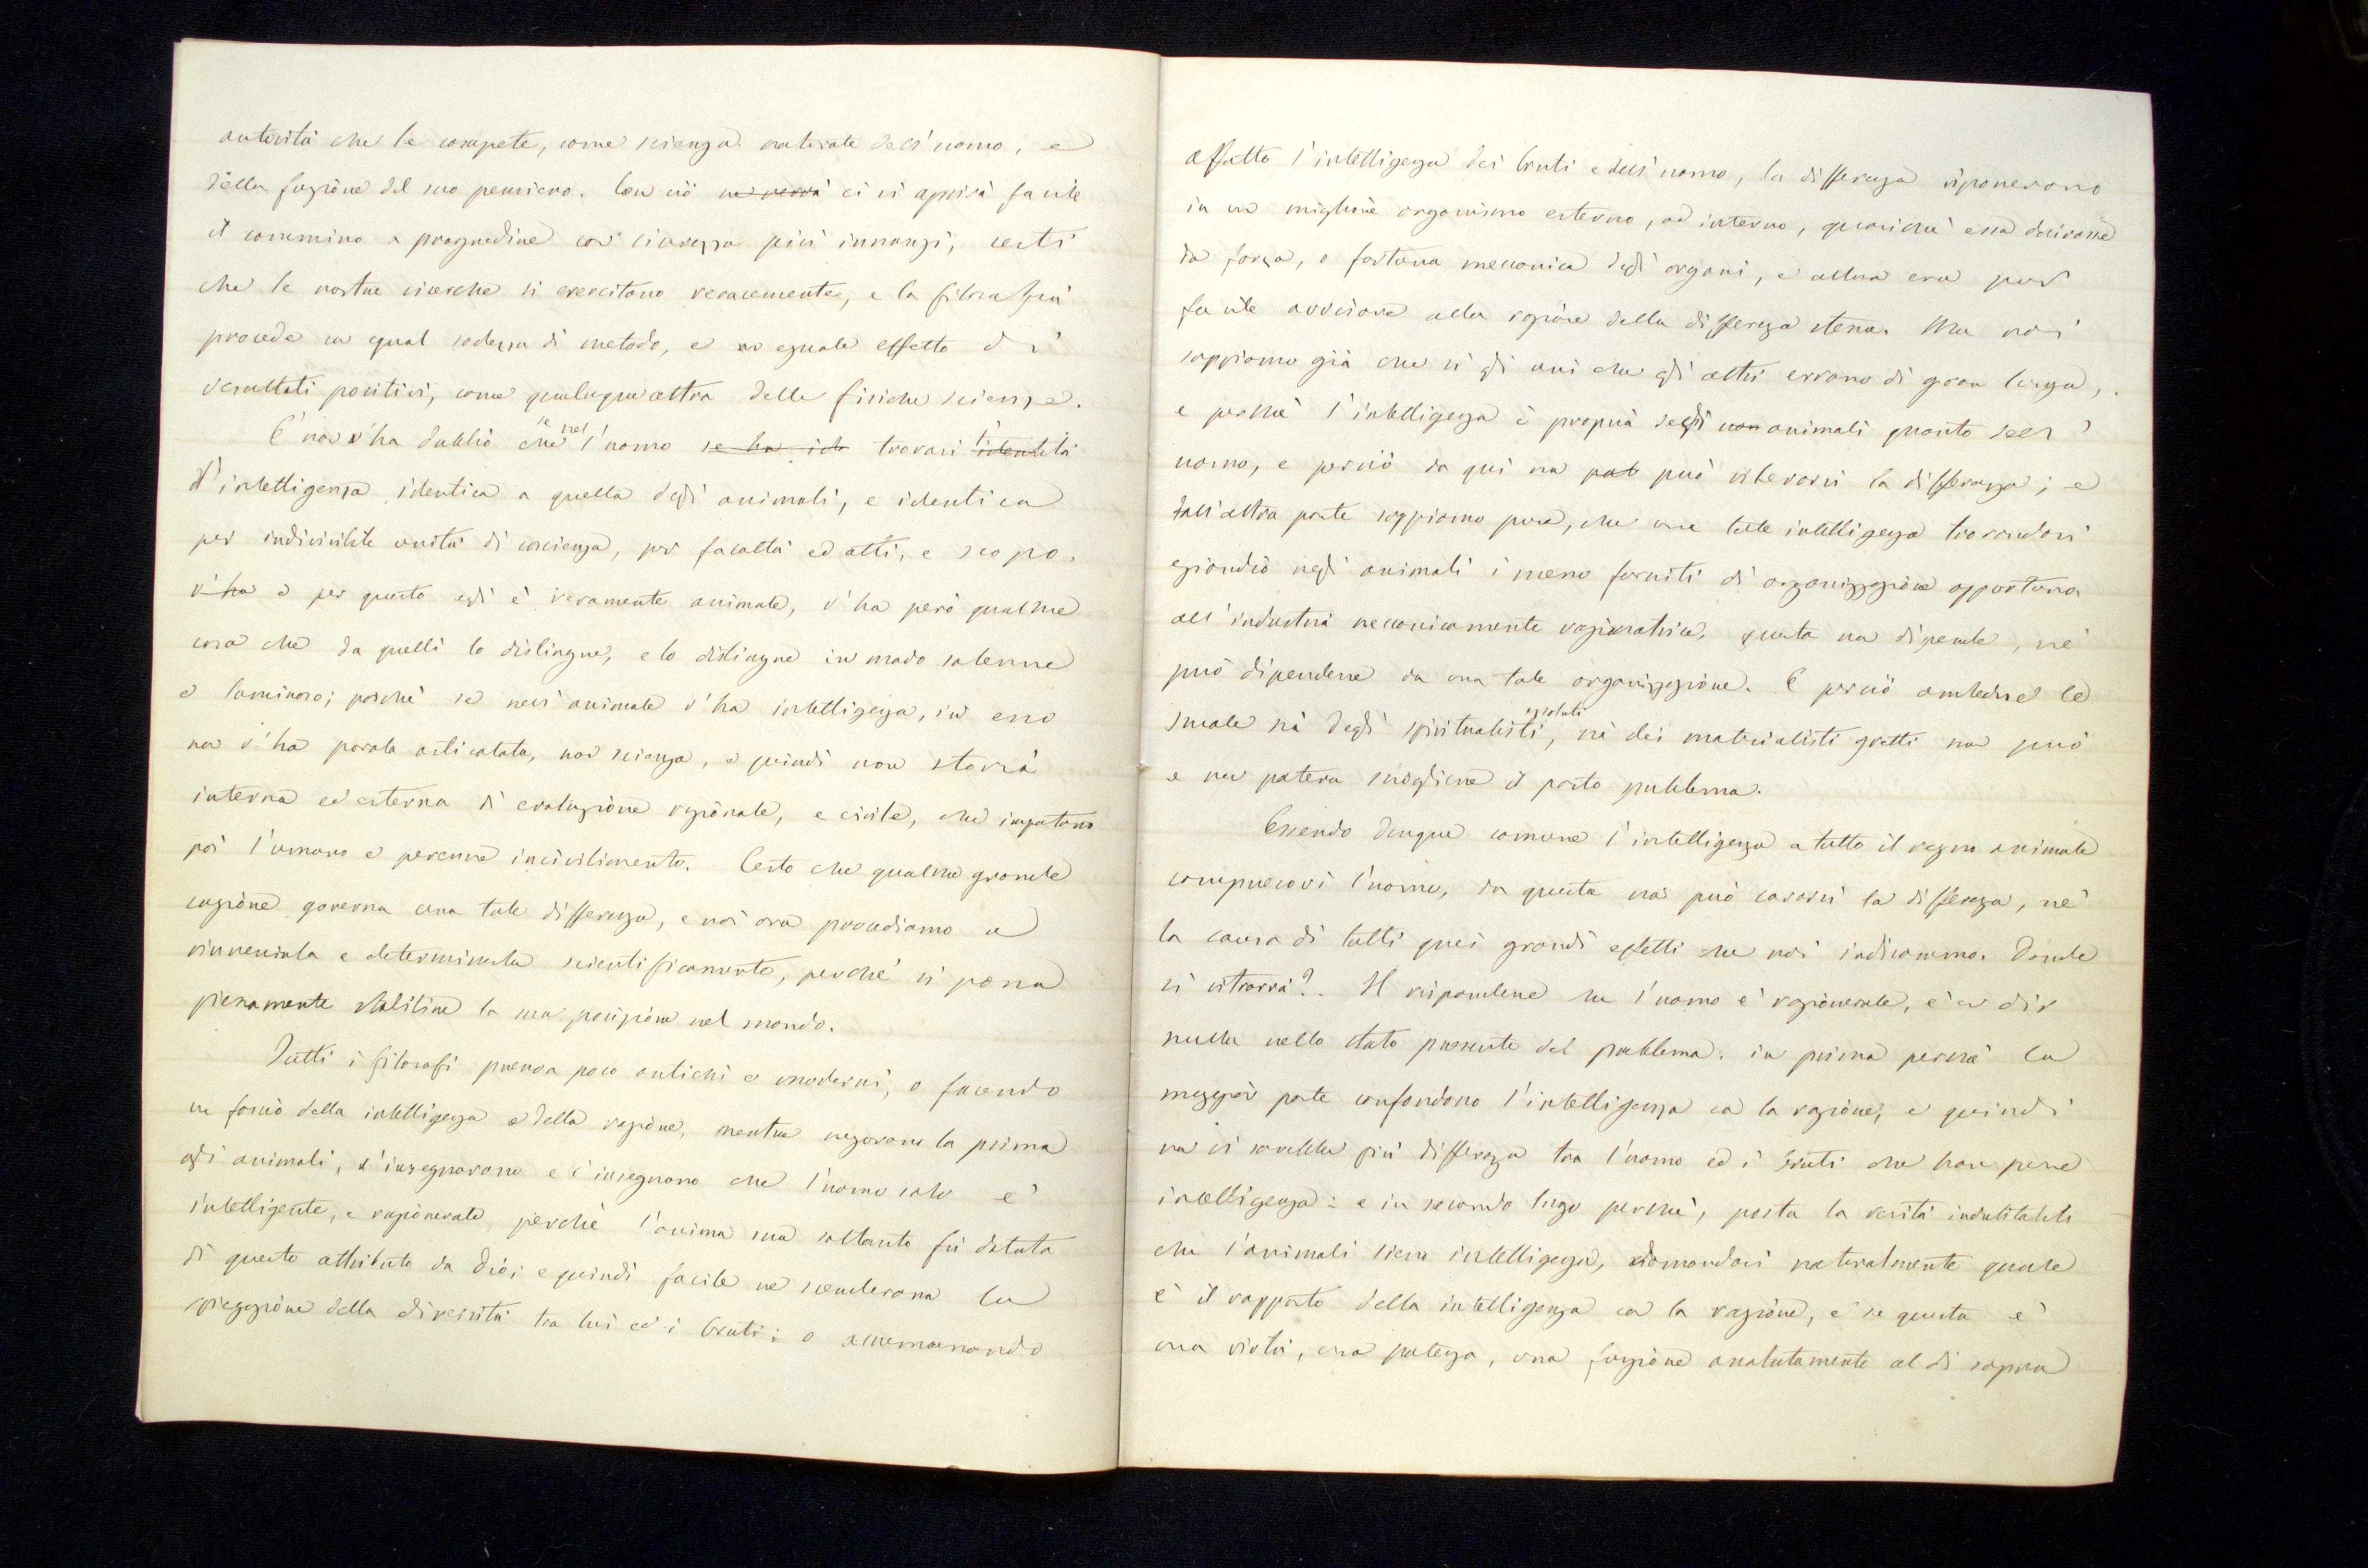 autorità che le compete, come scienza naturale dell'uomo, e
della funzione del suo pensiero. Con ciò ne verrà ci si aprirà facile
il cammino a progredire con sicurezza più innanzi, certi
che le nostre ricerche si esercitano veracemente, e la filosofia
procede con egual sodezza di metodo, e con eguale effetto di
resultati positivi, come qualunque altra delle fisiche scienze.
E non v'ha dubbio che se nel l'uomo se ha ide trovasi l' identità
d'intelligenza identica a quella degli animali, e identica
per indivisibile unità di coscienza, per facoltà ed atti, e scopo,
v'ha e per questo egli è veramente animale, v'ha però qualche
cosa che da quelli lo distingue, e lo distingue in modo solenne
e luminoso; poichè se nell'animale v'ha intelligenza, in esso
non v'ha parola articolata, non scienza, e quindi non storia
interna ed esterna di evoluzione razionale, e civile, che importano
poi l'umano e perenne incivilimento. Certo che qualche grande
cagione governa una tale differenza, e noi ora procediamo a
rinvenirla e determinarla scientificamente, perchè si possa
pienamente stabilire la sua posizione nel mondo.
Tutti i filosofi pressa poco antichi e moderni, o facendo
un fascio della intelligenza e della ragione, mentre negarono la prima
agli animali, c'insegnarono e c'insegnano che l'uomo solo è
intelligente, e ragionevole, perchè l'anima sua soltanto fu dotata
di questo attributo da Dio; e quindi facile ne scenderono la
spiegazione della diversità tra lui ed i bruti: o accomunando
affatto l'intelligenza dei bruti e dell'uomo, la differenza riponevano
in un migliore organismo esterno, od interno, quasichè essa derivasse
da forza, o fortuna meccanica degli organi, e allora era pur
facile avvisare alla ragione della differenza stessa. Ma noi
sappiamo già che sì gli uni che gli altri errano di gran lunga,
e perchè l'intelligenza è propria degli uom animali quanto dell'
uomo, e perciò da qui non pot può rilevarsi la differenza; e
dall'altra parte sappiamo pure, che una tale intelligenza trovandosi
eziandio negli animali i meno forniti di organizzazione opportuna
all'industria meccanicamente ragionatrice, questa non dipende, nè
può dipendere da una tale organizzazione. E perciò ambedue le
scuole nè degli spiritualisti assoluti, nè dei materialisti gretti non può
e non poteva sciogliere il posto problema.
Essendo dunque comune l'intelligenza a tutto il regno animale
compresovi l'uomo, da questa non può cavarsi la differenza, nè
la causa di tutti quei grandi effetti che noi indicammo. Donde
si ritrarrà? Il rispondere che l'uomo è ragionevole, è un dir
nulla nello stato presente del problema: in prima perchè la
maggior parte confondono l'intelligenza con la ragione, e quindi
non vi sarebbe più differenza tra l'uomo ed i bruti che han pure
intelligenza: e in secondo luogo perchè, posta la verità indubitabile
che l'animali sieno intelligenza, domandasi naturalmente quale
è il rapporto della intelligenza con la ragione, e se questa è
una virtù, una potenza, una funzione assolutamente al di sopra